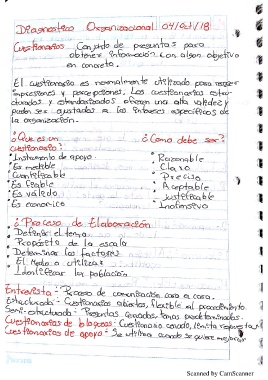 Diagnostico Organizacional 04/oct/18
Cuestionarios Conjunto de preguntas para
obtener información con algun objetivo
en concreto.
El cuestionario es normalmente utilizado para
impresiones y percepciones. Los cuestionarios estru-
cturados y estandarizados ofrecen una alta validez y
pueden ser ajustados a los intereses especificos de
la organización.
¿Que es un cuestionario?
Instrumento de apoyo
Es medible
Cuantificable
Es fiable
Es valido
Es economico
¿Como debe ser?
Razonable
Claro
Preciso
Aceptable
Justificable
Inofensivo
¿Proceso de Elaboración
Definir el tema
Proposito de la escala
Determinar los factores
El medio a utilizar
Identificar la población
Entrevista: Proceso de comunicación cara a cara.
Estructurada: Cuestionarios abiertos, flexible al procedimiento
Semi-estructurada: Preguntas cerradas, temas predeterminados.
Cuestionarios de bloques: Cuestionario cerrado, limita respuestas
Cuestionarios de apoyo: Se utiliza cuando se quiere
Scanned by CamScanner